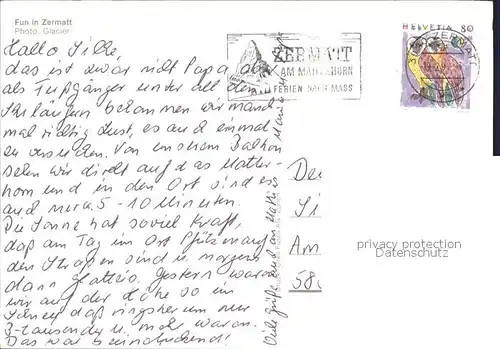 Fun in Zermatt
Photo: Glacier
Hallo Silke,
das ist zwar nicht Papa, aber
als Fußgänger unter all den
Skiläufern bekommen wir manch-
mal richtig Lust, es auch einmal
zu versuchen. Von unserem Balkon
sehen wir direkt auf das Matter-
horn und in den Ort sind es
auch nur ca. 5-10 Minuten.
Die Sonne hat soviel Kraft,
daß am Tag im Ort Pfützen auf
den Straßen sind u. morgens
dann Glatteis. Gestern waren
wir auf der Höhe so im
Schnee, daß ringsherum nur
3-tausender u. mehr waren.
Das war beeindruckend!
Viele Grüße auch an Mathias
ZERMATT
AM MATTERHORN
FERIEN NACH MASS
HELVETIA 80
ZERMATT
Si
Am
58
privacy protection
Datenschutz